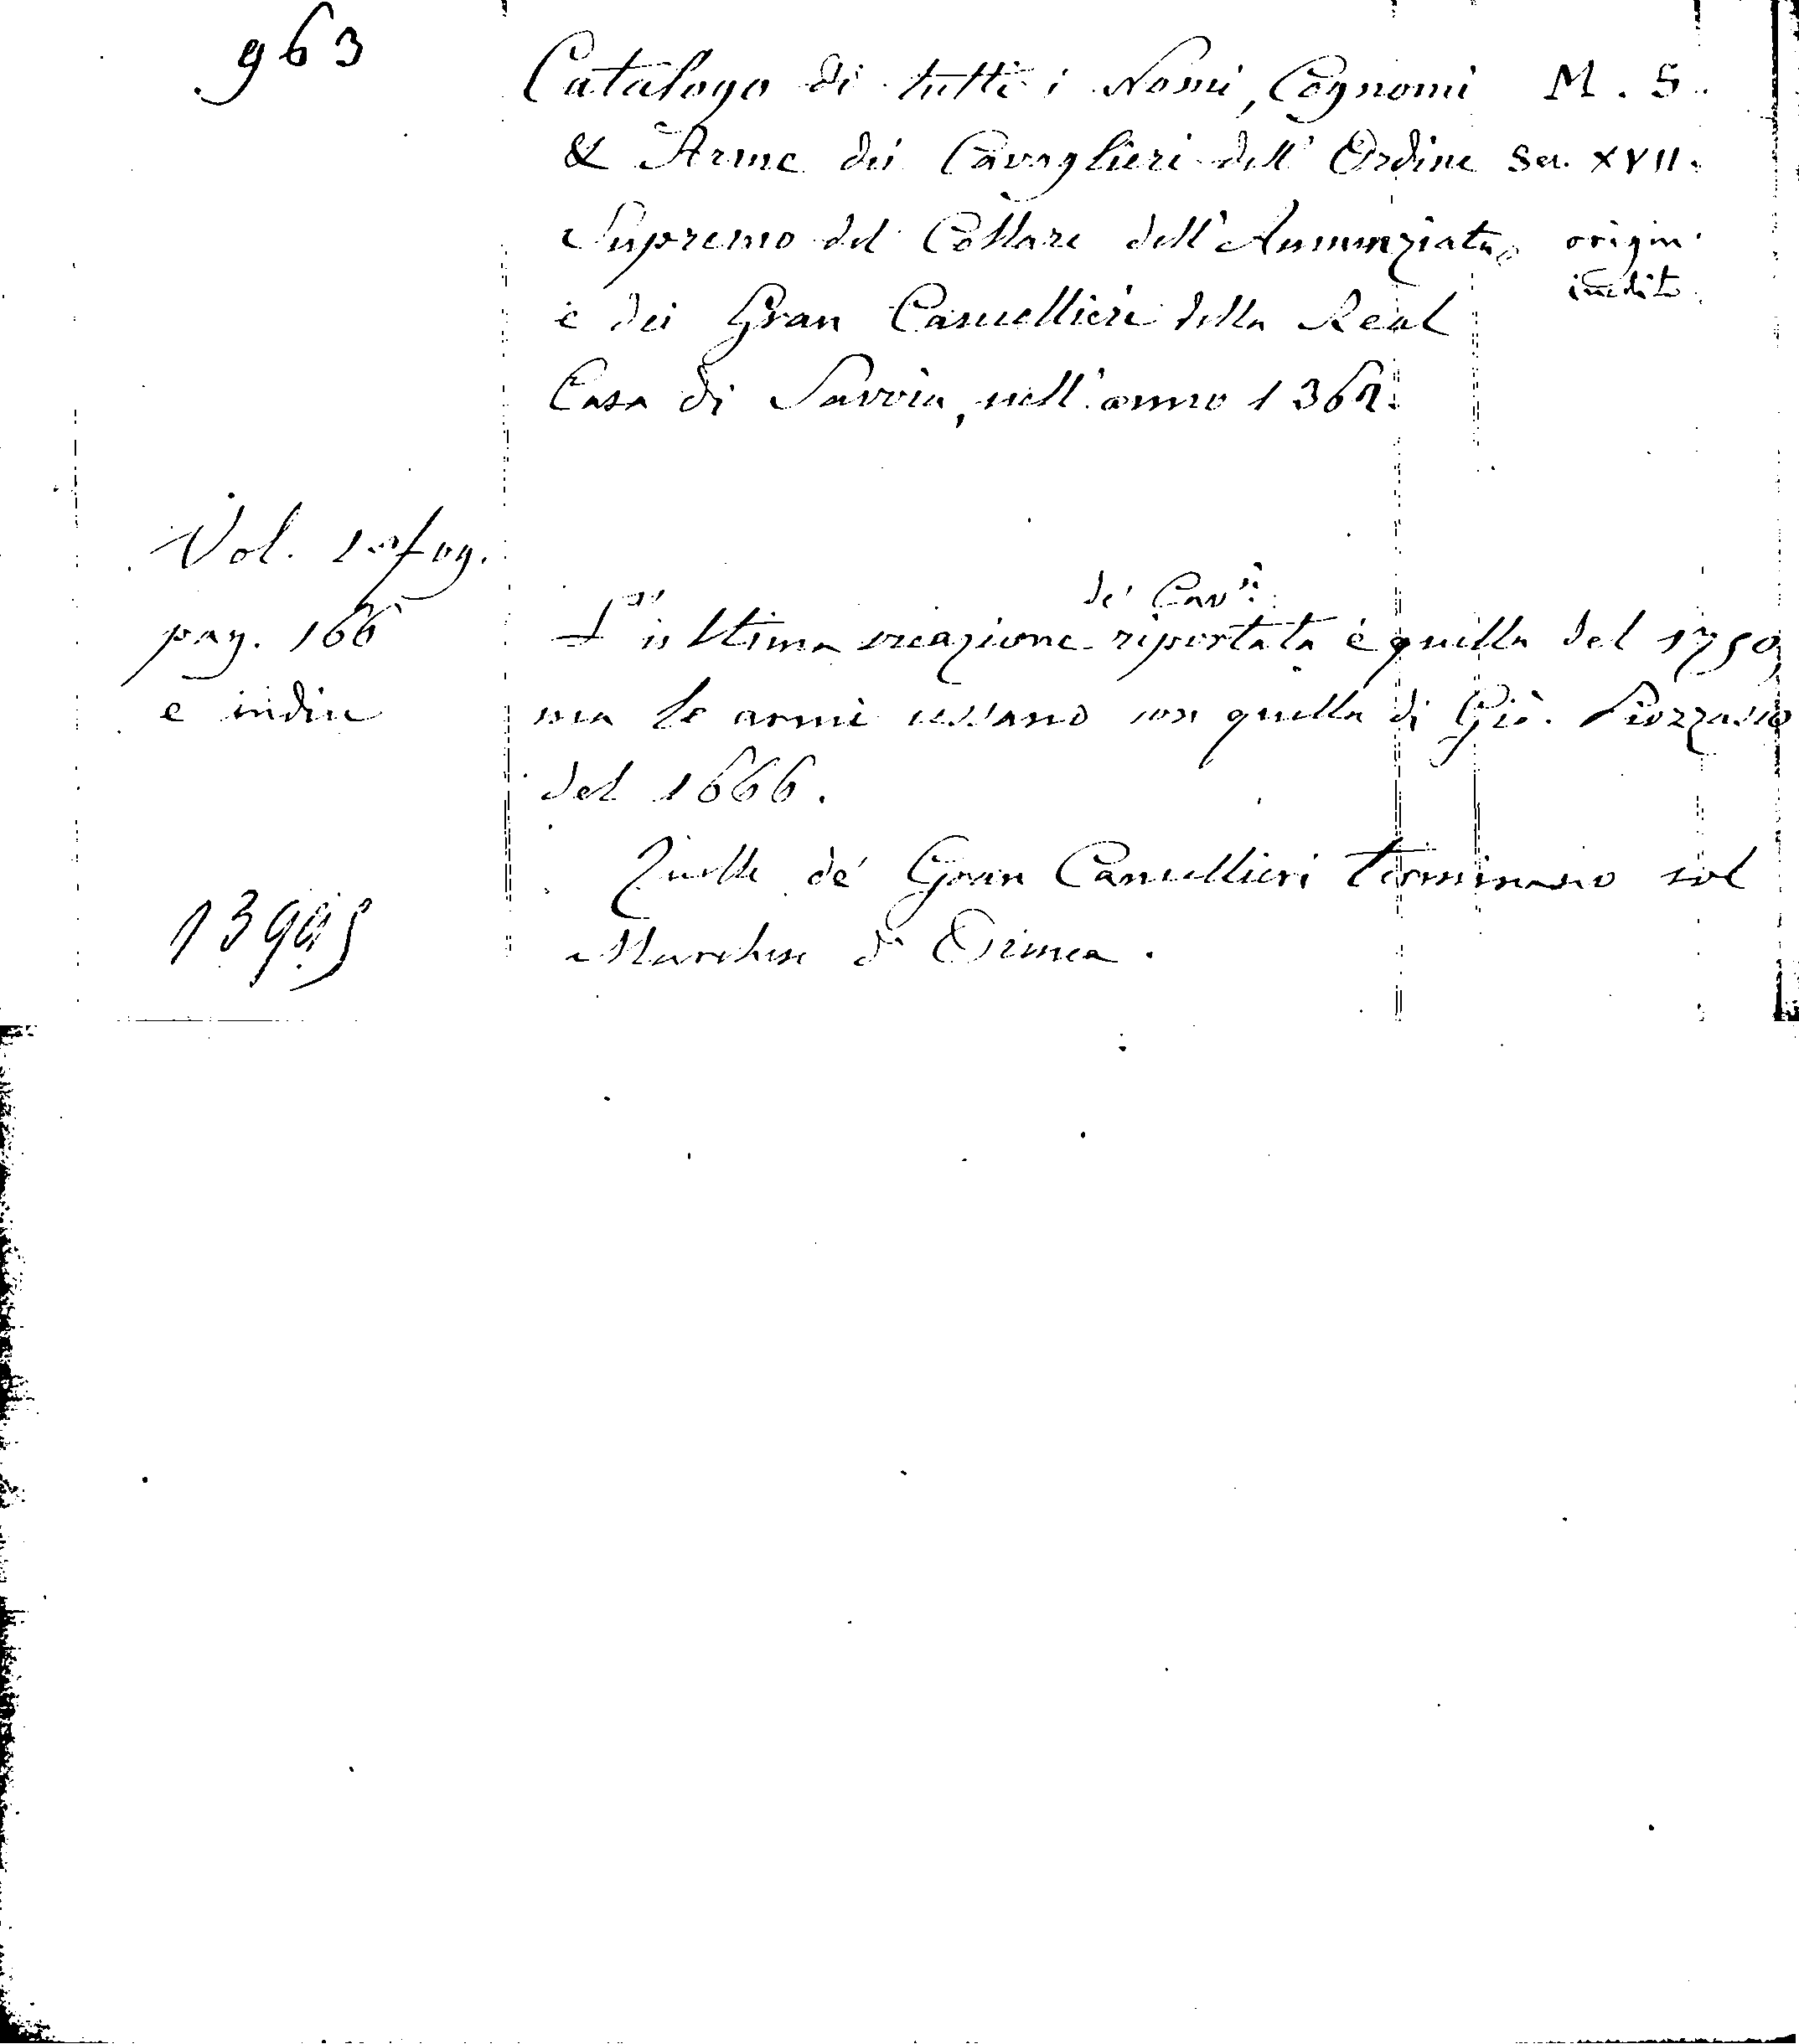 963
Catalogo di tutti i Nomi, Cognomi
& Arme dei Cavaglieri dell' Ordine
Supremo del Collare dell' Annunziata
e dei Gran Cancellieri della Real
Casa di Savoia, nell' anno 1362.
M. S.
Sec. XVII.
origin.
inedito
Vol. 1 in fog.
pag. 166
e indice
de' Cav.ri
L'ultima creazione riportata è quella del 1750,
ma le armi cessano con quella di Giò. Piozzasco
del 1666.
Quelle de' Gran Cancellieri terminano col
Marchese d' Ormea.